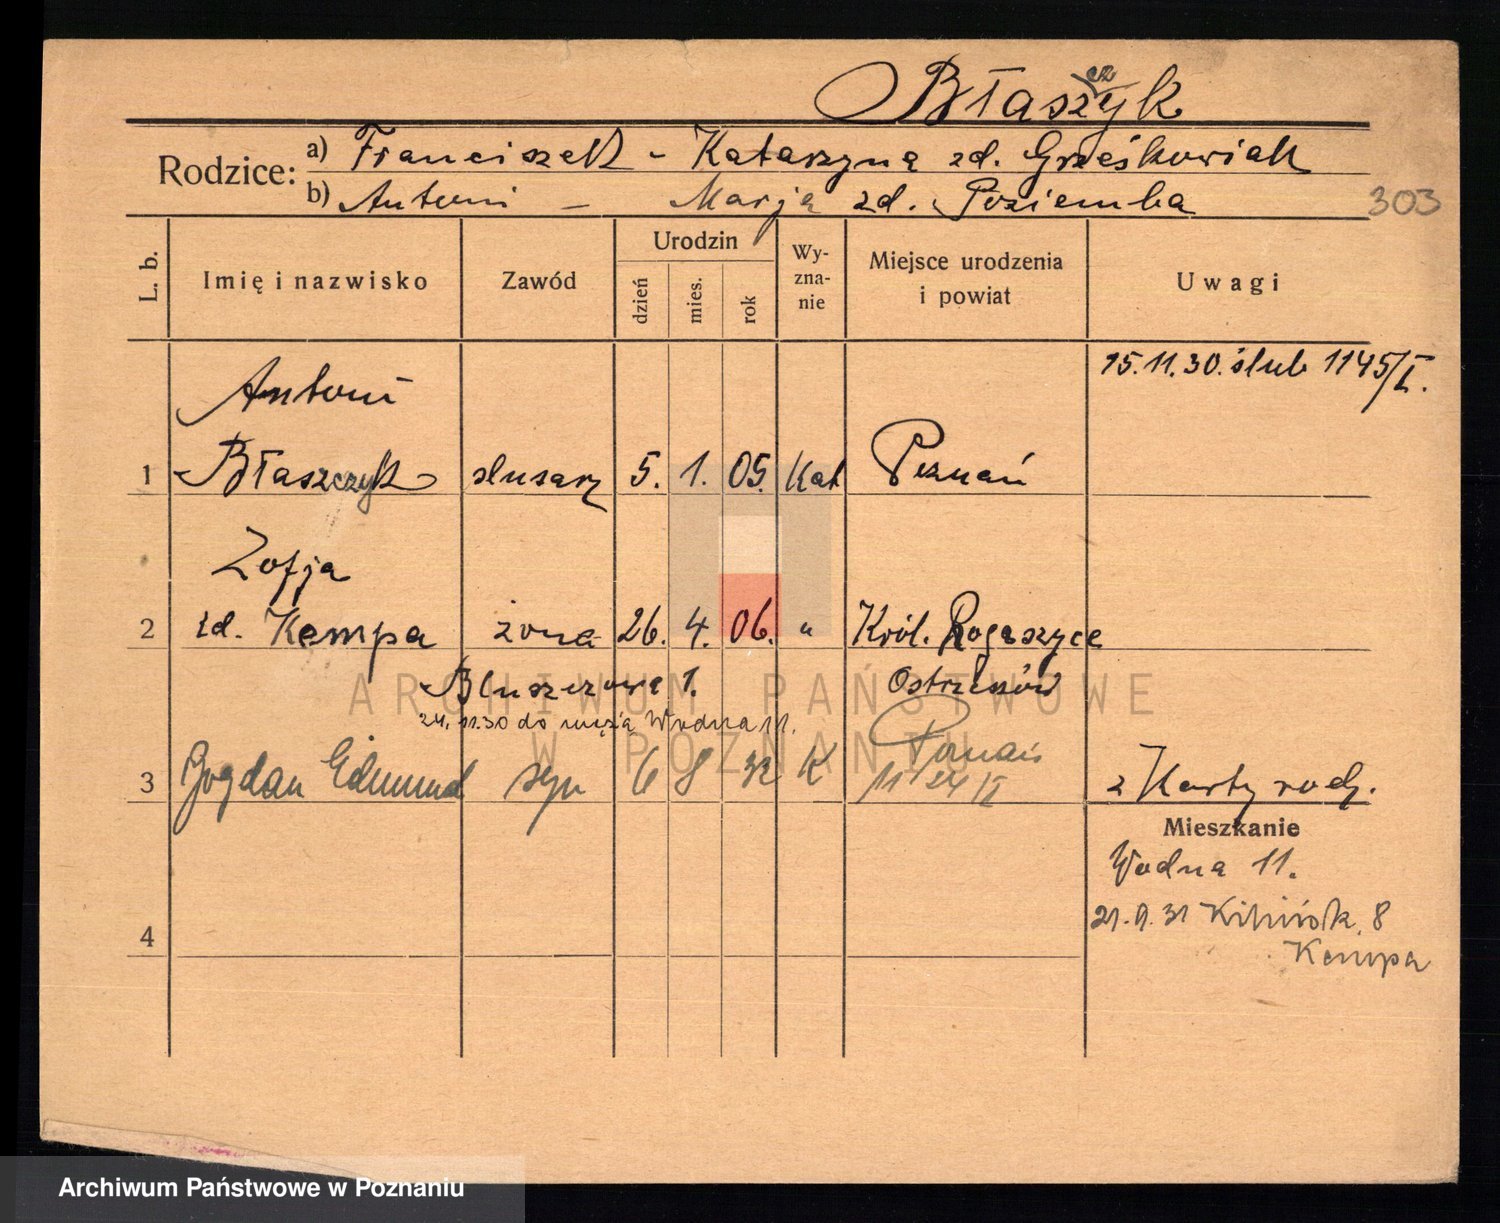 Błaszczyk
Rodzice: a) Franciszek - Katarzyna zd. Grześkowiak
b) Antoni - Marja zd. Poziemba
303
L. b. Imię i nazwisko Zawód Urodzin dzień mies. rok Wy-zna-nie Miejsce urodzenia i powiat Uwagi
15.11.30. ślub 1145/I.
Antoni
1 Błaszczyk slusarz 5. 1. 05. Kat Poznań
Zofja
2 zd. Kempa żona 26. 4. 06. " Król. Rogaszyce
1. Ostrzeszów
24.11.30 do męża Wodna 11.
Poznań
3 Bogdan Edmund syn 6 8 32 K 11 24/II z Karty rodz.
Mieszkanie
Wodna 11.
21.9.31 8
4
Kempa
ARCHIWUM PAŃSTWOWE
W POZNANIU
Archiwum Państwowe w Poznaniu